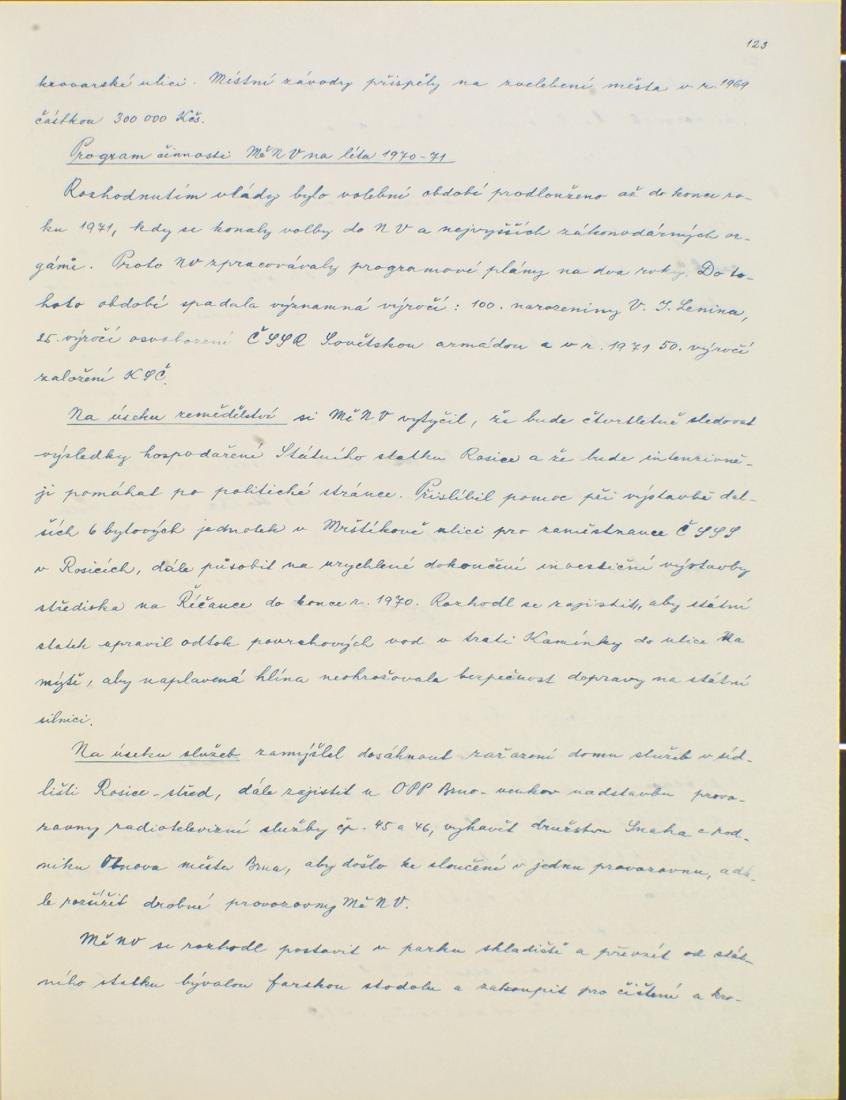 123
krovarské ulici. Místní závody přispěly na zvelebení města v r. 1969
částkou 300 000 Kčs.
Program činnosti MěNV na léta 1970-71
Rozhodnutím vlády bylo volební období prodlouženo až do konce ro-
ku 1971, kdy se konaly volby do NV a nejvyšších zákonodárných or-
gánů. Proto NV zpracovávaly programové plány na dva roky. Do to-
hoto období spadala významná výročí: 100. narozeniny V. I. Lenina,
25. výročí osvobození ČSSR Sovětskou armádou a v r. 1971 50. výročí
založení KSČ.
Na úseku zemědělství si MěNV vytyčil, že bude čtvrtletně sledovat
výsledky hospodaření Státního statku Rosice a že bude intenzivně-
ji pomáhat po politické stránce. Přislíbil pomoc při výstavbě dal-
ších 6 bytových jednotek v Mrštíkově ulici pro zaměstnance ČSSS
v Rosicích, dále působit na urychlené dokončení investiční výstavby
střediska na Říčance do konce r. 1970. Rozhodl se zajistit, aby státní
statek upravil odtok povrchových vod v trati Kamínky do ulice Na
mýtě, aby naplavená hlína neohrožovala bezpečnost dopravy na státní
silnici.
Na úseku služeb zamýšlel dosáhnout zařazení domu služeb v síd-
lišti Rosice-střed, dále zajistit u OPP Brno-venkov nadstavbu provo-
zovny radiotelevizní služby čp. 45 a 46, vyhavět družstvu Snaha a pod-
niku Obnova města Brna, aby došlo ke sloučení v jednu provozovnu, a dá-
le rozšířit drobné provozovny MěNV.
MěNV se rozhodl postavit v parku skladiště a převzít od stát-
ního statku bývalou farskou stodolu a zakoupit pro čištění a kro-